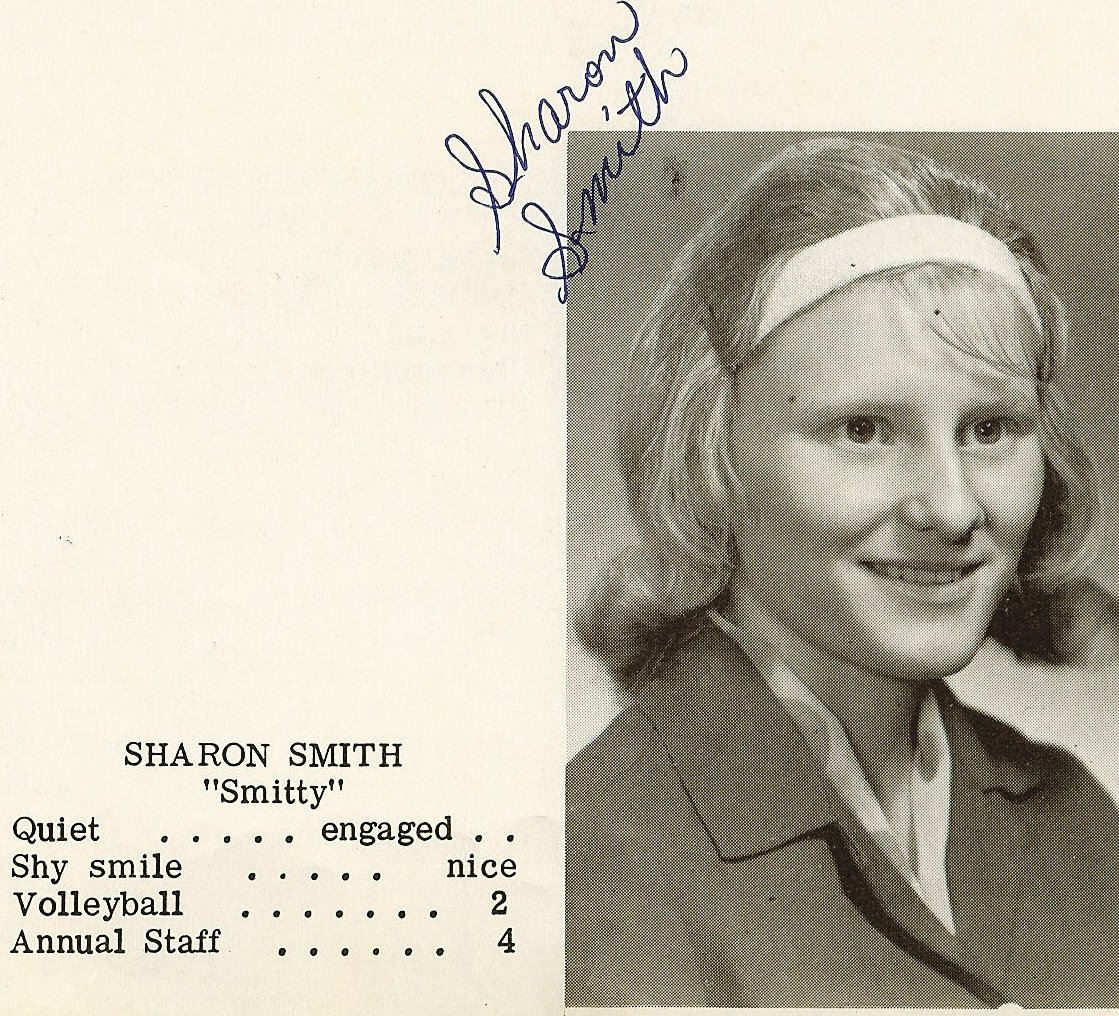 Sharon
Smith
SHARON SMITH
"Smitty"
Quiet . . . . . engaged . .
Shy smile . . . . . nice
Volleyball . . . . . . . 2
Annual Staff . . . . . . 4